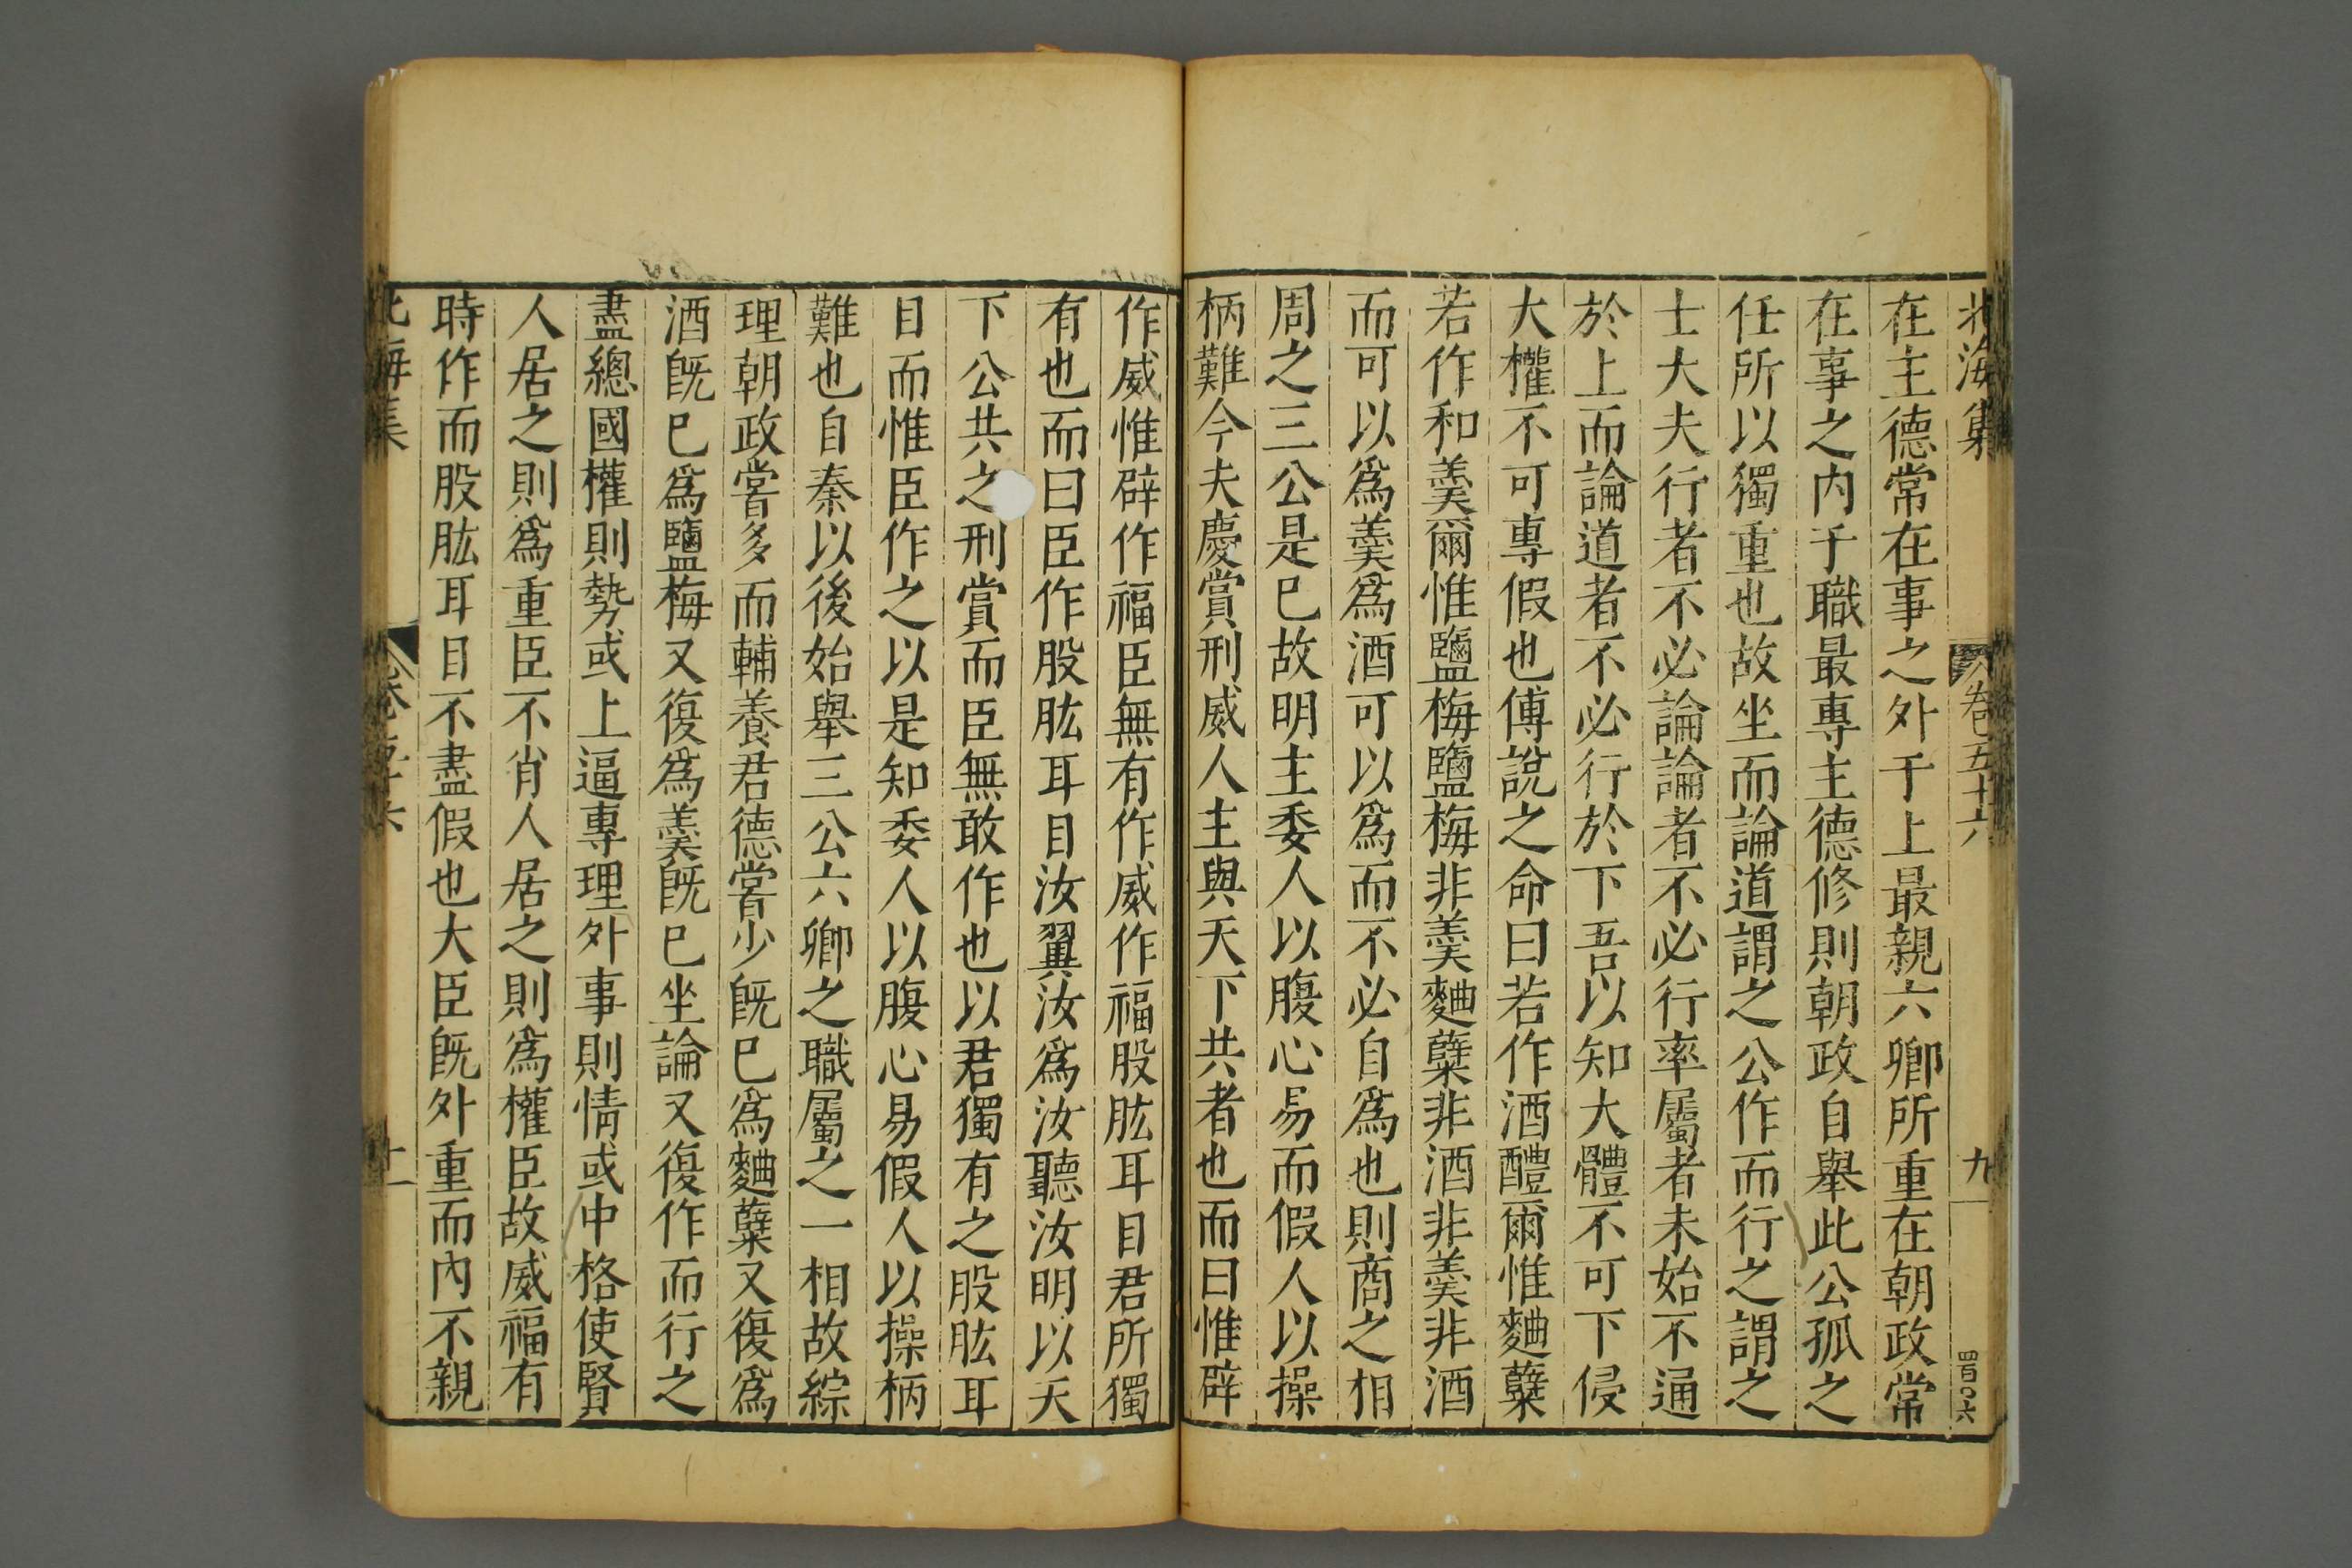 北海集 卷五十六 九 四百〇六
在主德常在事之外于上最親六卿所重在朝政常
在事之內于職最專主德修則朝政自舉此公孤之
任所以獨重也故坐而論道謂之公作而行之謂之
士大夫行者不必論論者不必行率屬者未始不通
於上而論道者不必行於下吾以知大體不可下侵
大權不可專假也傅說之命曰若作酒醴爾惟麯糵
若作和羹爾惟鹽梅鹽梅非羹麯糵非酒非羹非酒
而可以為羹為酒可以為而不必自為也則商之相
周之三公是巳故明主委人以腹心易而假人以操
柄難今夫慶賞刑威人主與天下共者也而曰惟辟
作威惟辟作福臣無有作威作福股肱耳目君所獨
有也而曰臣作股肱耳目汝翼汝為汝聽汝明以天
下公共之刑賞而臣無敢作也以君獨有之股肱耳
目而惟臣作之以是知委人以腹心易假人以操柄
難也自秦以後始舉三公六卿之職屬之一相故綜
理朝政嘗多而輔養君德嘗少旣巳為麯糵又復為
酒旣巳為鹽梅又復為羹旣巳坐論又復作而行之
盡總國權則勢或上逼專理外事則情或中格使賢
人居之則為重臣不肖人居之則為權臣故威福有
時作而股肱耳目不盡假也大臣旣外重而內不親
北海集 卷五十六 十一